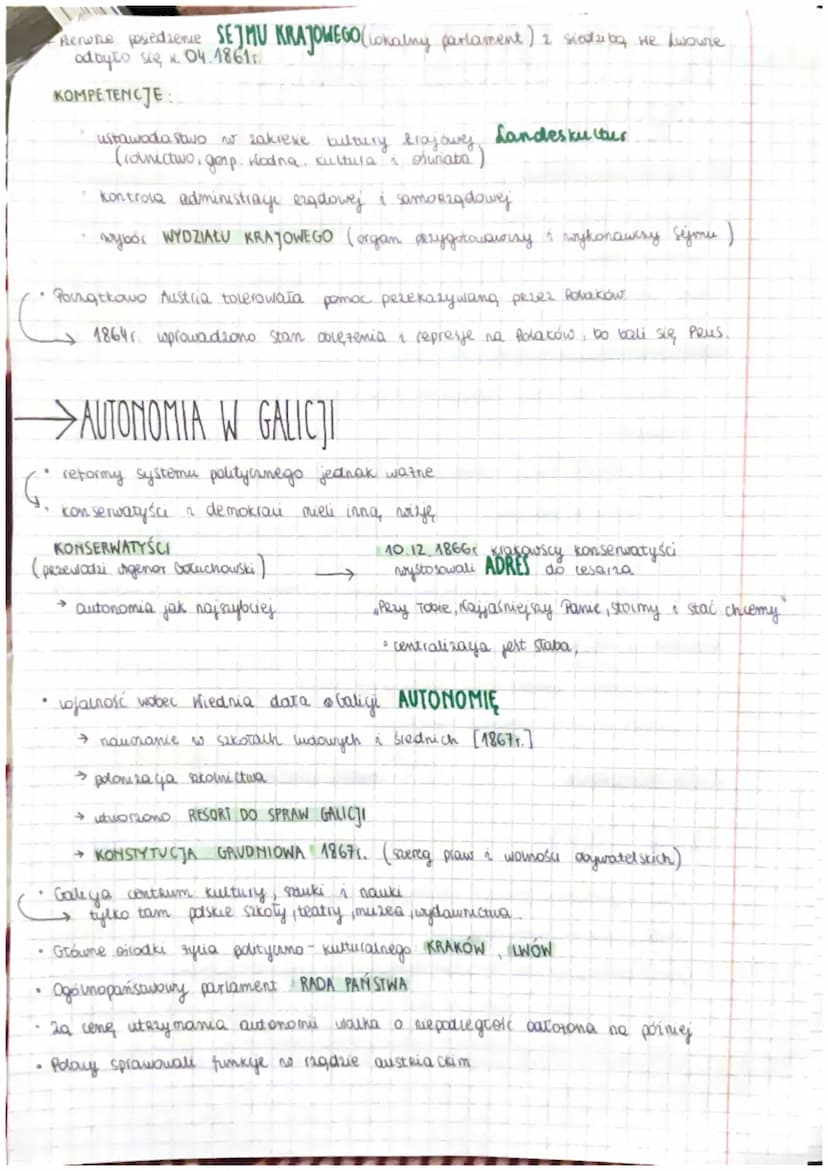 Pierwsze posiedzenie SEJMU KRAJOWEGO (lokalny parlament) z siedzibą we Lwowie
odbyło się w 04.1861r.
KOMPETENCJE:
• ustawodastwo w zakresie kultury krajowej Landeskultur
(rolnictwo, gosp. wodna, kultura i oświata)
• kontrola administracji rządowej i samorządowej
• wybór WYDZIAŁU KRAJOWEGO (organ przygotowawczy i wykonawczy sejmu)
• Początkowo Austria tolerowała pomoc przekazywaną przez Polaków
→ 1864r. wprowadzono stan oblężenia i represje na Polaków, bo bali się Prus.
→ AUTONOMIA W GALICJI
• reformy systemu politycznego jednak ważne
• konserwatyści i demokraci mieli inną wizję
KONSERWATYŚCI
(przewodzi Agenor Gołuchowski) →
→ autonomia jak najszybciej
10.12.1866r krakowscy konserwatyści
wystosowali ADRES do cesarza
„Przy Tobie, Najjaśniejszy Panie, stoimy i stać chcemy"
• centralizacja jest słaba,
• lojalność wobec Wiednia dała Galicji AUTONOMIĘ
→ nauczanie w szkołach ludowych i średnich [1867r.]
→ polonizacja szkolnictwa
→ utworzono RESORT DO SPRAW GALICJI
→ KONSTYTUCJA GRUDNIOWA 1867r. (szereg praw i wolności obywatelskich)
• Galicja centrum kultury, sztuki i nauki
→ tylko tam polskie szkoły, teatry, muzea, wydawnictwa
• Główne ośrodki życia polityczno-kulturalnego: KRAKÓW, LWÓW
• Ogólnopaństwowy parlament RADA PAŃSTWA
• Za cenę utrzymania autonomii walka o niepodległość odłożona na później
• Polacy sprawowali funkcje w rządzie austriackim